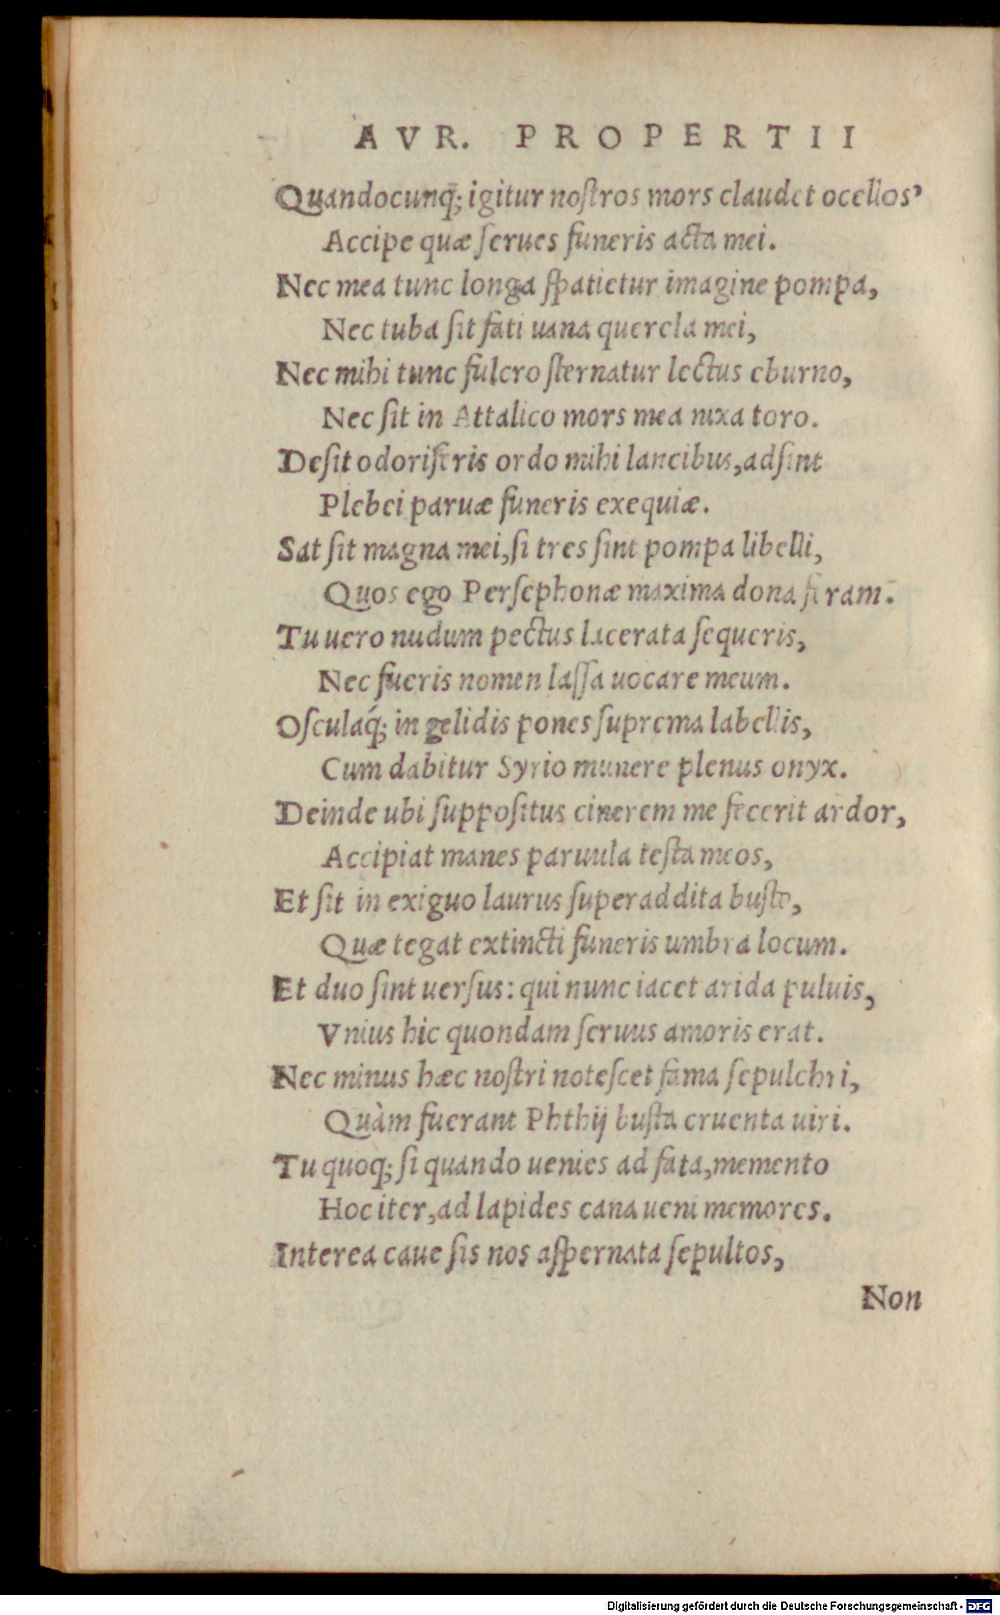 AVR. PROPERTII
Quandocunq̃; igitur noſtros mors claudet ocellos,
Accipe quæ ſerues funeris acta mei.
Nec mea tunc longa ſpatietur imagine pompa,
Nec tuba ſit fati uana querela mei,
Nec mihi tunc fulcro ſternatur lectus eburno,
Nec ſit in Attalico mors mea nixa toro.
Deſit odoriferis ordo mihi lancibus, adſint
Plebei paruæ funeris exequiæ.
Sat ſit magna mei, ſi tres ſint pompa libelli,
Quos ego Perſephonæ maxima dona feram.
Tu uero nudum pectus lacerata ſequeris,
Nec fueris nomen laſſa uocare meum.
Oſculaq́; in gelidis pones ſuprema labellis,
Cum dabitur Syrio munere plenus onyx.
Deinde ubi ſuppoſitus cinerem me fecerit ardor,
Accipiat manes paruula teſta meos,
Et ſit in exiguo laurus ſuperaddita buſto,
Quæ tegat extincti funeris umbra locum.
Et duo ſint uerſus: qui nunc iacet arida puluis,
Vnius hic quondam ſeruus amoris erat.
Nec minus hæc noſtri noteſcet fama ſepulchri,
Quàm fuerant Phthij buſta cruenta uiri.
Tu quoq; ſi quando uenies ad fata, memento
Hoc iter, ad lapides cana ueni memores.
Interea caue ſis nos aſpernata ſepultos,
Non
Digitalisierung gefördert durch die Deutsche Forschungsgemeinschaft - DFG